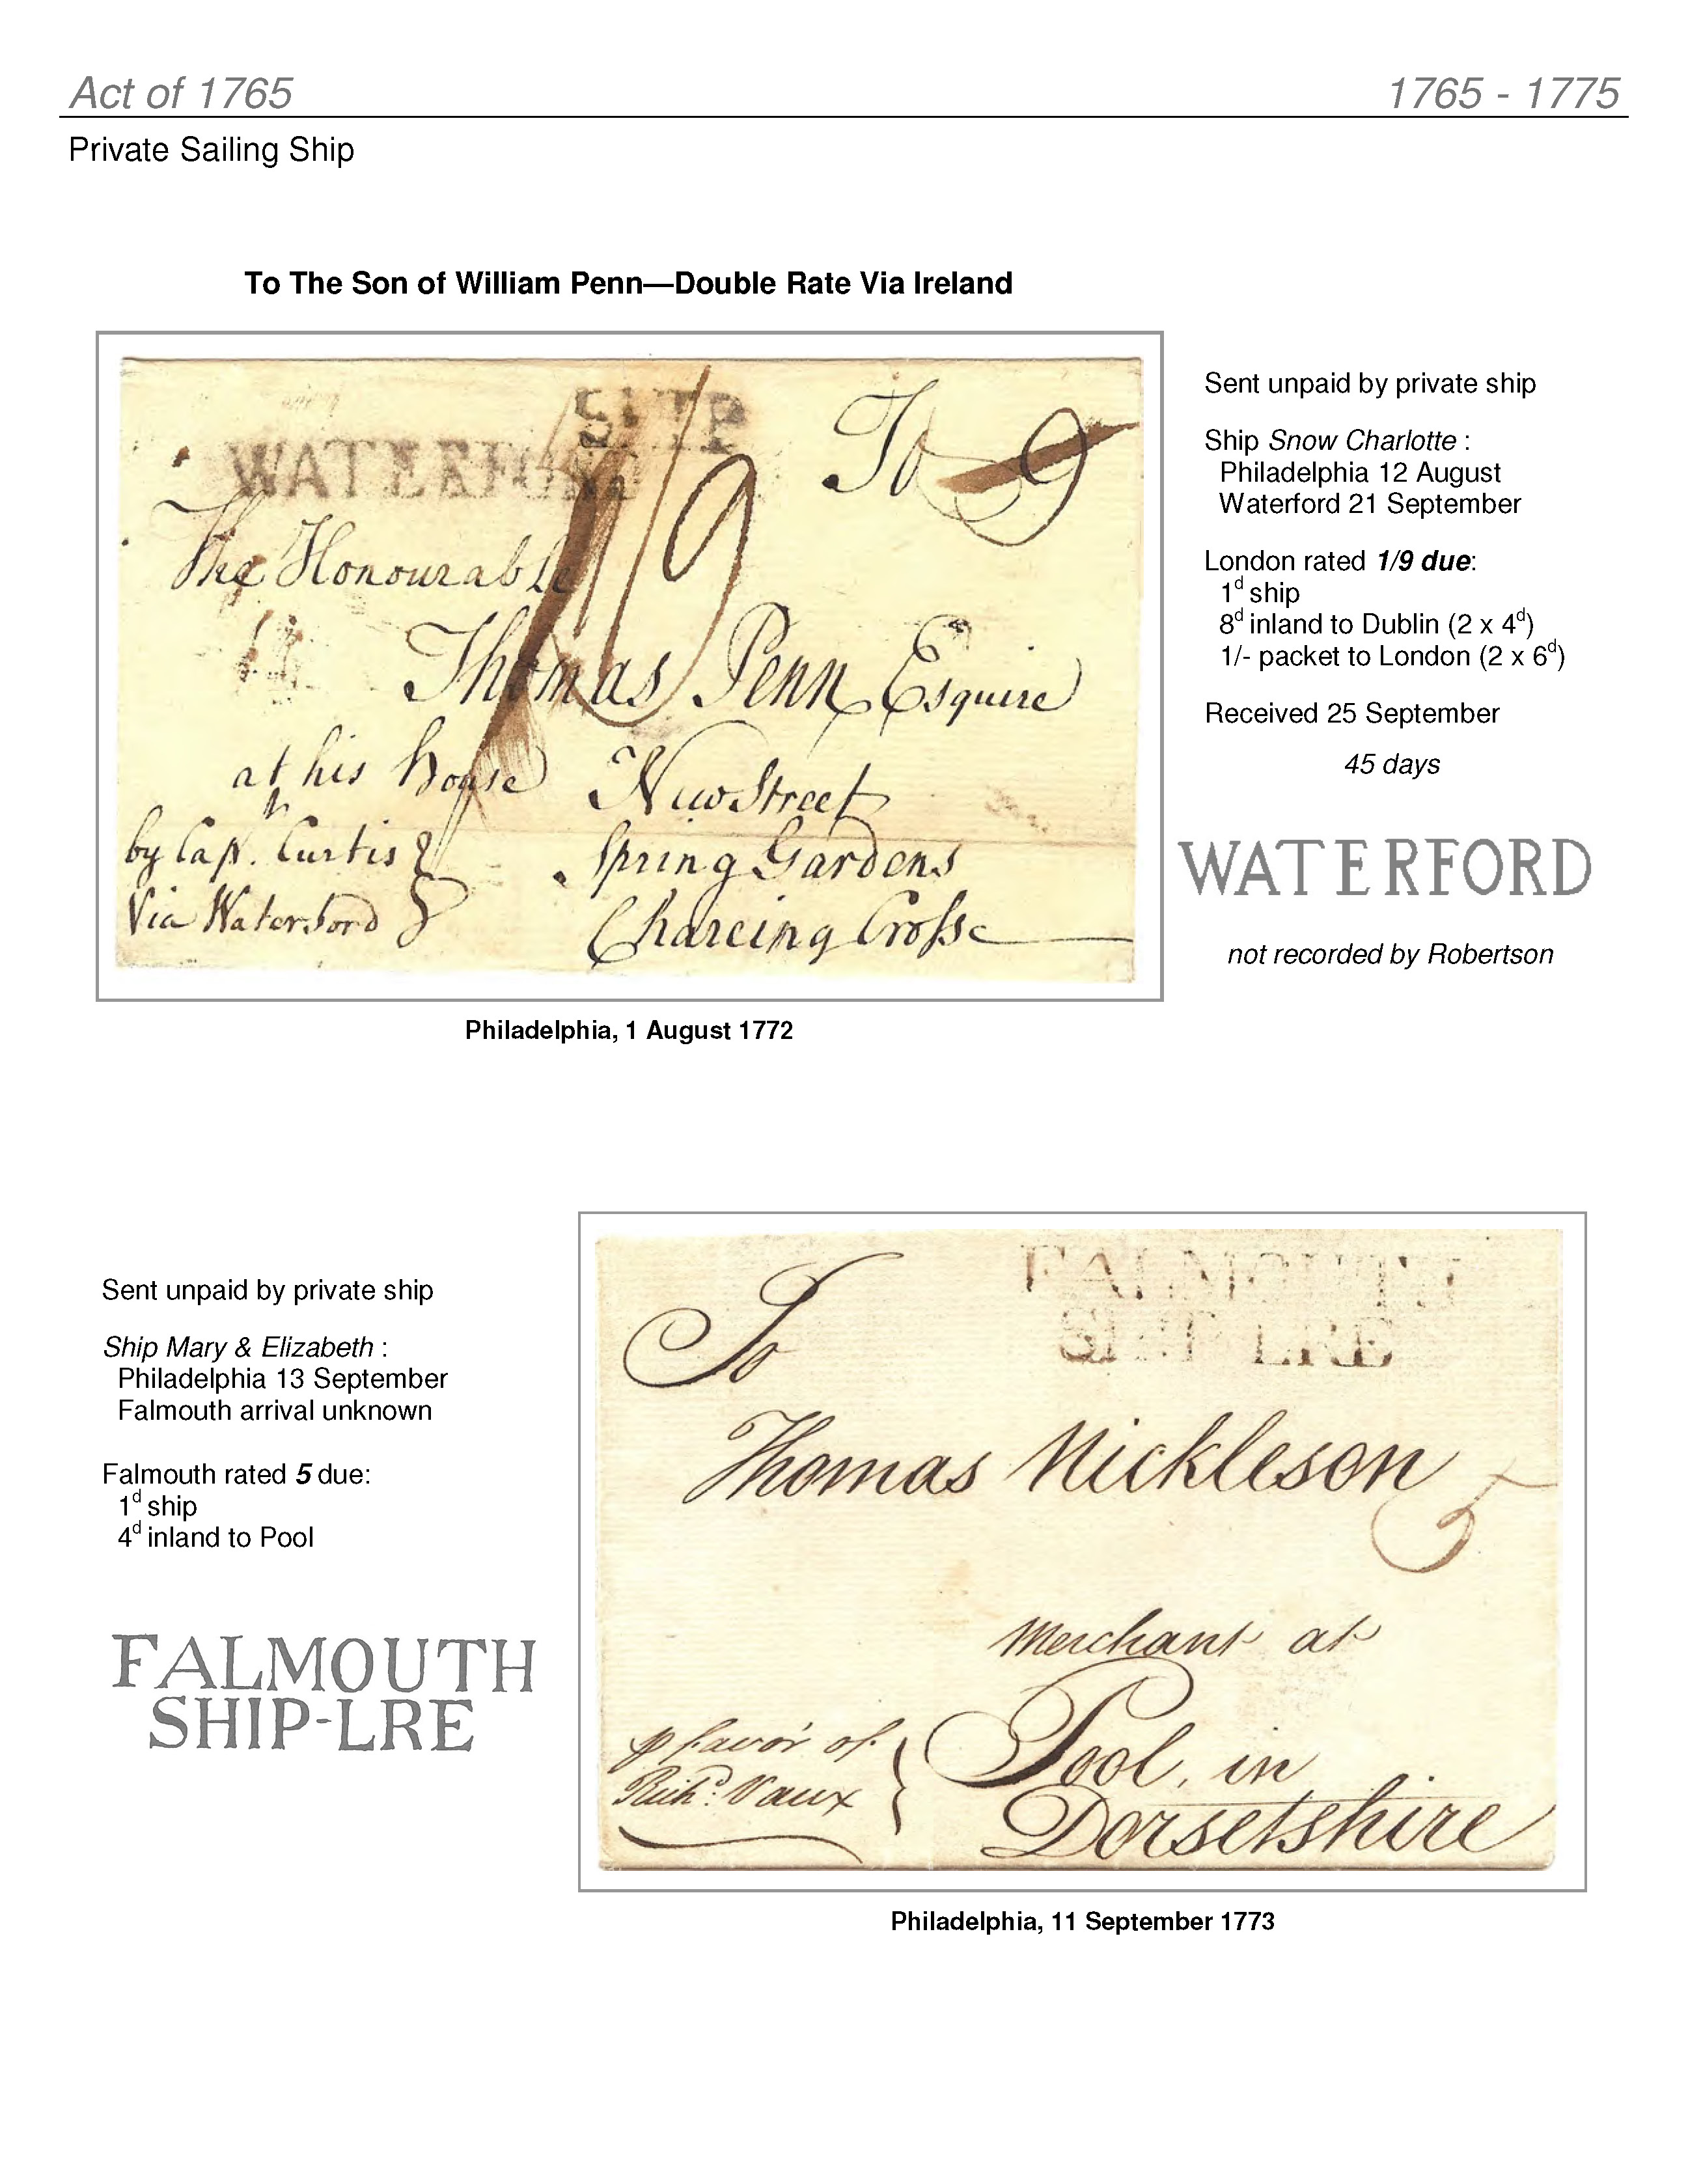 Act of 1765
1765 - 1775
Private Sailing Ship
To The Son of William Penn—Double Rate Via Ireland
SHIP
WATERFORD
To 9
1/9
The Honourable
Thomas Penn Esquire
at his house New Street
by Capt. Curtis Spring Gardens
Via Waterford Chareing Crosse
Philadelphia, 1 August 1772
Sent unpaid by private ship
Ship Snow Charlotte :
Philadelphia 12 August
Waterford 21 September
London rated 1/9 due:
1d ship
8d inland to Dublin (2 x 4d)
1/- packet to London (2 x 6d)
Received 25 September
45 days
WATERFORD
not recorded by Robertson
Sent unpaid by private ship
Ship Mary & Elizabeth :
Philadelphia 13 September
Falmouth arrival unknown
Falmouth rated 5 due:
1d ship
4d inland to Pool
FALMOUTH
SHIP-LRE
FALMOUTH
SHIP LRE
To
Thomas Nickleson
5
Merchant at
Pool, in
Dorsetshire
p favor of
Richd. Vaux
Philadelphia, 11 September 1773